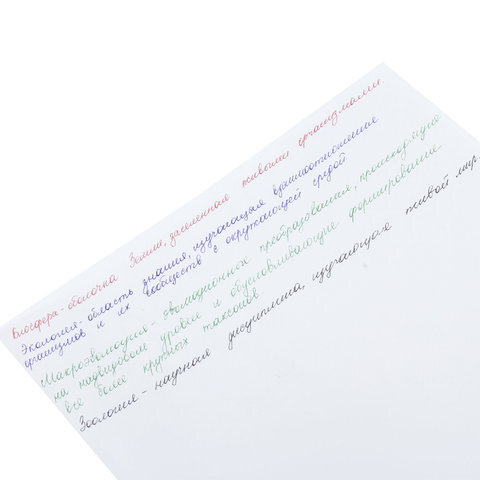 Биосфера - оболочка Земли, заселенная живыми организмами.
Экология - область знания, изучающая взаимоотношения
организмов и их сообществ с окружающей средой.
Макроэволюция - эволюционные преобразования, происходящие
на надвидовом уровне и обуславливающие формирование
все более крупных таксонов.
Зоология - научная дисциплина, изучающая живой мир.